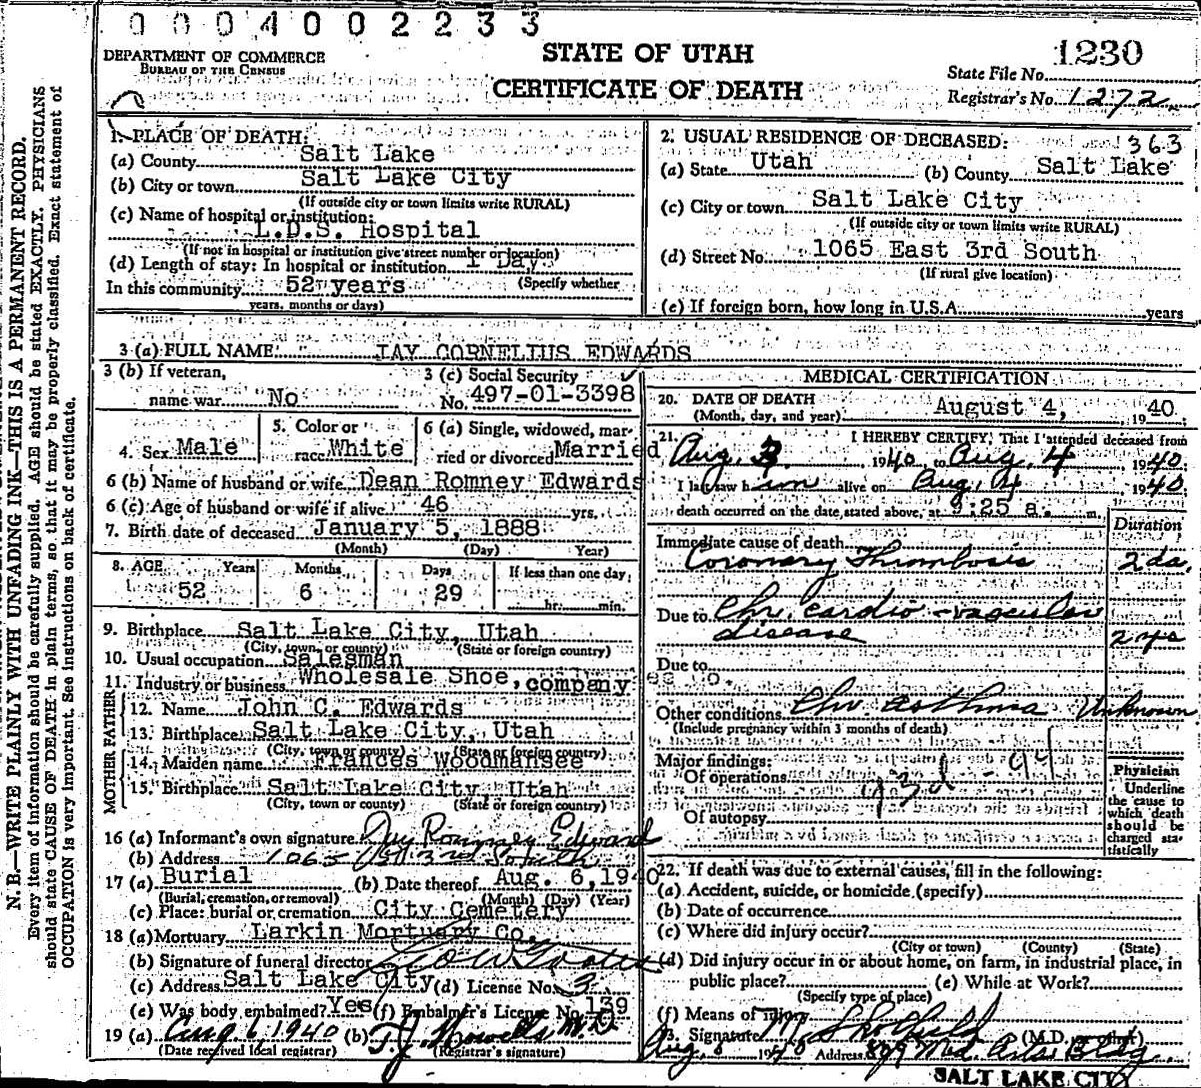 000400233
DEPARTMENT OF COMMERCE
BUREAU OF THE CENSUS
STATE OF UTAH
CERTIFICATE OF DEATH
1230
State File No.
Registrar's No. 1272
N. B.—WRITE PLAINLY WITH UNFADING INK—THIS IS A PERMANENT RECORD.
Every item of information should be carefully supplied. AGE should be stated EXACTLY. PHYSICIANS
should state CAUSE OF DEATH in plain terms, so that it may be properly classified. Exact statement of
OCCUPATION is very important. See instructions on back of certificate.
1. PLACE OF DEATH:
(a) County Salt Lake
(b) City or town Salt Lake City
(If outside city or town limits write RURAL)
(c) Name of hospital or institution:
L.D.S. Hospital
(If not in hospital or institution give street number or location)
(d) Length of stay: In hospital or institution 1 Day
(Specify whether
In this community 52 years
years, months or days)
2. USUAL RESIDENCE OF DECEASED: 363
(a) State Utah (b) County Salt Lake
(c) City or town Salt Lake City
(If outside city or town limits write RURAL)
(d) Street No. 1065 East 3rd South
(If rural give location)
(e) If foreign born, how long in U.S.A. years
3 (a) FULL NAME JAY CORNELIUS EDWARDS
3 (b) If veteran,
name war No
3 (c) Social Security
No. 497-01-3398
4. Sex Male
5. Color or
race White
6 (a) Single, widowed, mar-
ried or divorced Married
6 (b) Name of husband or wife Dean Romney Edwards
6 (c) Age of husband or wife if alive 46 yrs.
7. Birth date of deceased January 5, 1888
(Month) (Day) Year)
8. AGE Years Months Days If less than one day
52 6 29 hr. min.
9. Birthplace Salt Lake City, Utah
(City, town, or county) (State or foreign country)
10. Usual occupation Salesman
11. Industry or business Wholesale Shoe, company
FATHER
12. Name John C. Edwards
13. Birthplace Salt Lake City, Utah
(City, town or county) (State or foreign country)
MOTHER
14. Maiden name Frances Woodmansee
15. Birthplace Salt Lake City, Utah
(City, town or county) (State or foreign country)
16 (a) Informant's own signature Jay Romney Edward
(b) Address 1065 East 3rd South
17 (a) Burial (b) Date thereof Aug. 6, 1940
(Burial, cremation, or removal) (Month) (Day) (Year)
(c) Place: burial or cremation City Cemetery
18 (a) Mortuary Larkin Mortuary Co.
(b) Signature of funeral director
(c) Address Salt Lake City (d) License No. 3
(e) Was body embalmed? Yes (f) Embalmer's License No. 139
19 (a) Aug 6, 1940 (b) T. J. Howells M.D.
(Date received local registrar) (Registrar's signature)
MEDICAL CERTIFICATION
20. DATE OF DEATH
(Month, day, and year) August 4, 1940
21. I HEREBY CERTIFY, That I attended deceased from
Aug. 3 1940 to Aug. 4 1940
I last saw him alive on Aug. 4 1940
death occurred on the date stated above, at 9:25 a. m.
Duration
Immediate cause of death
Coronary Thrombosis 2 da.
Due to Chr. cardio-vascular
disease 2 yrs
Due to
Other conditions Chr. asthma Unknown
(Include pregnancy within 3 months of death)
Major findings:
Of operations
93d - 94
Of autopsy
Physician
Underline
the cause to
which death
should be
charged sta-
tistically
22. If death was due to external causes, fill in the following:
(a) Accident, suicide, or homicide (specify)
(b) Date of occurrence
(c) Where did injury occur?
(City or town) (County) (State)
(d) Did injury occur in or about home, on farm, in industrial place, in
public place? (e) While at Work?
(Specify type of place)
(f) Means of injury
Signature (M.D. or other)
Aug. 1940 Address 829 Med. Arts Bldg.
SALT LAKE CITY